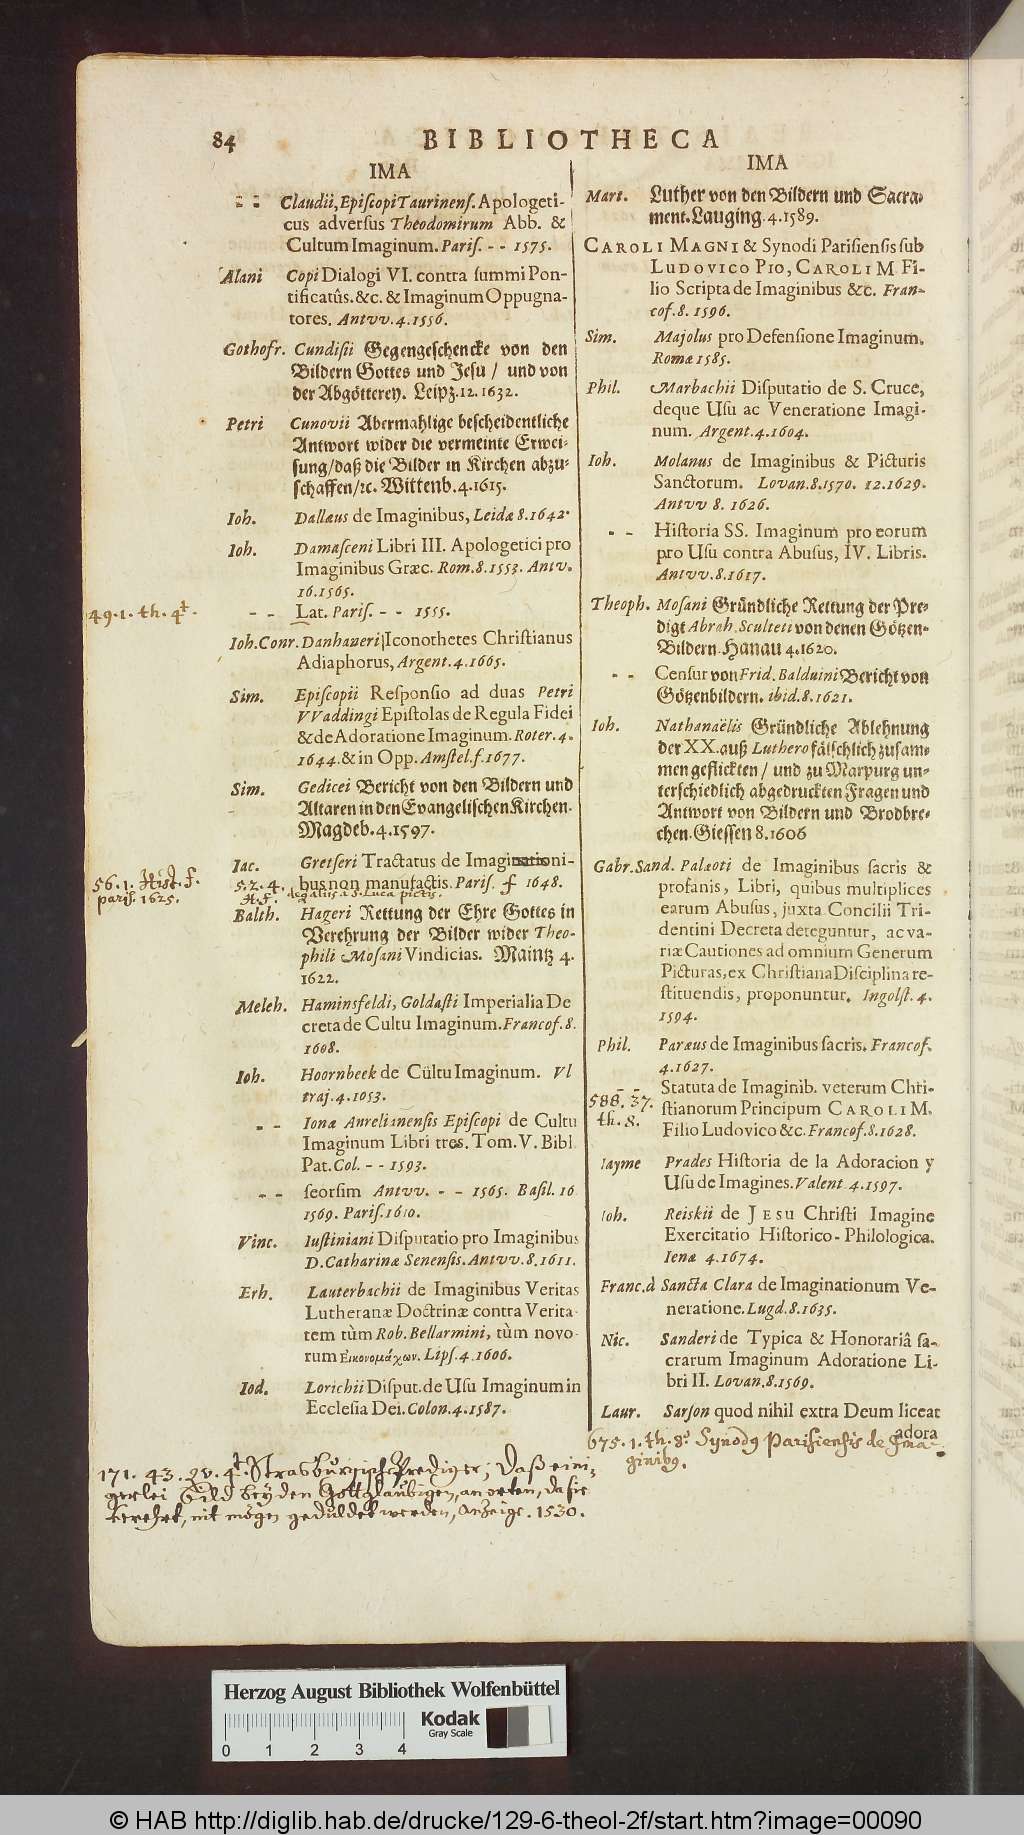 84 BIBLIOTHECA
IMA
- - Claudii, Episcopi Taurinens. Apologeti-
cus adversus Theodomirum Abb. &
Cultum Imaginum. Paris. - - 1575.
Alani Copi Dialogi VI. contra summi Pon-
tificatûs. &c. & Imaginum Oppugna-
tores. Antvv. 4. 1556.
Gothofr. Cundisii Gegengeschencke von den
Bildern Gottes und Jesu / und von
der Abgötterey. Leipz. 12. 1632.
Petri Cunovii Abermahlige bescheidentliche
Antwort wider die vermeinte Erwei-
sung / daß die Bilder in Kirchen abzu-
schaffen / ꝛc. Wittenb. 4. 1615.
Ioh. Dallæus de Imaginibus, Leidæ 8. 1642.
Ioh. Damasceni Libri III. Apologetici pro
Imaginibus Græc. Rom. 8. 1553. Antv.
16. 1565.
49. 1. th. 4t. - - Lat. Paris. - - 1555.
Ioh. Conr. Danhaueri Iconothetes Christianus
Adiaphorus, Argent. 4. 1665.
Sim. Episcopii Responsio ad duas Petri
VVaddingi Epistolas de Regula Fidei
& de Adoratione Imaginum. Roter. 4.
1644. & in Opp. Amstel. f. 1677.
Sim. Gedicei Bericht von den Bildern und
Altaren in den Evangelischen Kirchen.
Magdeb. 4. 1597.
Iac. Gretseri Tractatus de Imaginationi-
56. 1. Hist. f. 52. 4. bus non manufactis. Paris. f 1648.
paris. 1625. H. f. de aliis a S. Luca pictis.
Balth. Hageri Rettung der Ehre Gottes in
Verehrung der Bilder wider Theo-
phili Mosani Vindicias. Maintz 4.
1622.
Melch. Haminsfeldi, Goldasti Imperialia De
creta de Cultu Imaginum. Francof. 8.
1608.
Ioh. Hoornbeek de Cultu Imaginum. Vl
traj. 4. 1053.
- - Ionæ Aurelianensis Episcopi de Cultu
Imaginum Libri tres. Tom. V. Bibl.
Pat. Col. - - 1593.
- - seorsim Antvv. - - 1565. Basil. 16
1569. Paris. 1610.
Vinc. Iustiniani Disputatio pro Imaginibus
D. Catharinæ Senensis. Antvv. 8. 1611.
Erh. Lauterbachii de Imaginibus Veritas
Lutheranæ Doctrinæ contra Verita-
tem tùm Rob. Bellarmini, tùm novo-
rum Εικονομάχων. Lips. 4. 1606.
Iod. Lorichii Disput. de Usu Imaginum in
Ecclesia Dei. Colon. 4. 1587.
171. 43. qv. 4t Strasburgisch Prediger; Daß eini-
gerlei Bild beÿ den Gottglaubigen, an orten, da sie
verehrt, nit mögen geduldet werden, Anzeige. 1530.
IMA
Mart. Luther von den Bildern und Sacra-
ment. Lauging. 4. 1589.
CAROLI MAGNI & Synodi Parisiensis sub
LUDOVICO PIO, CAROLI M. Fi-
lio Scripta de Imaginibus &c. Fran-
cof. 8. 1596.
Sim. Majolus pro Defensione Imaginum.
Romæ 1585.
Phil. Marbachii Disputatio de S. Cruce,
deque Usu ac Veneratione Imagi-
num. Argent. 4. 1604.
Ioh. Molanus de Imaginibus & Picturis
Sanctorum. Lovan. 8. 1570. 12. 1629.
Antvv 8. 1626.
- - Historia SS. Imaginum pro eorum
pro Usu contra Abusus, IV. Libris.
Antvv. 8. 1617.
Theoph. Mosani Gründliche Rettung der Pre-
digt Abrah. Sculteti von denen Götzen-
Bildern. Hanau 4. 1620.
- - Censur von Frid. Balduini Bericht von
Götzenbildern. ibid. 8. 1621.
Ioh. Nathanaëlis Gründliche Ablehnung
der XX. auß Luthero fälschlich zusam-
men geflickten / und zu Marpurg un-
terschiedlich abgedruckten Fragen und
Antwort von Bildern und Brodbre-
chen. Giessen 8. 1606
Gabr. Sand. Palæoti de Imaginibus sacris &
profanis, Libri, quibus multiplices
earum Abusus, juxta Concilii Tri-
dentini Decreta deteguntur, ac va-
riæ Cautiones ad omnium Generum
Picturas, ex Christiana Disciplina re-
stituendis, proponuntur. Ingolst. 4.
1594.
Phil. Paræus de Imaginibus sacris. Francof.
4. 1627.
- - Statuta de Imaginib. veterum Chri-
588. 37. stianorum Principum CAROLI M.
th. 8. Filio Ludovico &c. Francof. 8. 1628.
Jayme Prades Historia de la Adoracion y
Usu de Imagines. Valent 4. 1597.
Ioh. Reiskii de JESU Christi Imagine
Exercitatio Historico-Philologica.
Ienæ 4. 1674.
Franc. à Sancta Clara de Imaginationum Ve-
neratione. Lugd. 8. 1635.
Nic. Sanderi de Typica & Honorariâ sa-
crarum Imaginum Adoratione Li-
bri II. Lovan. 8. 1569.
Laur. Sarson quod nihil extra Deum liceat
adora
675. 1. th. 8. Synodus Parisiensis de Ima-
ginibus.
Herzog August Bibliothek Wolfenbüttel
Kodak
Gray Scale
0 1 2 3 4
© HAB http://diglib.hab.de/drucke/129-6-theol-2f/start.htm?image=00090